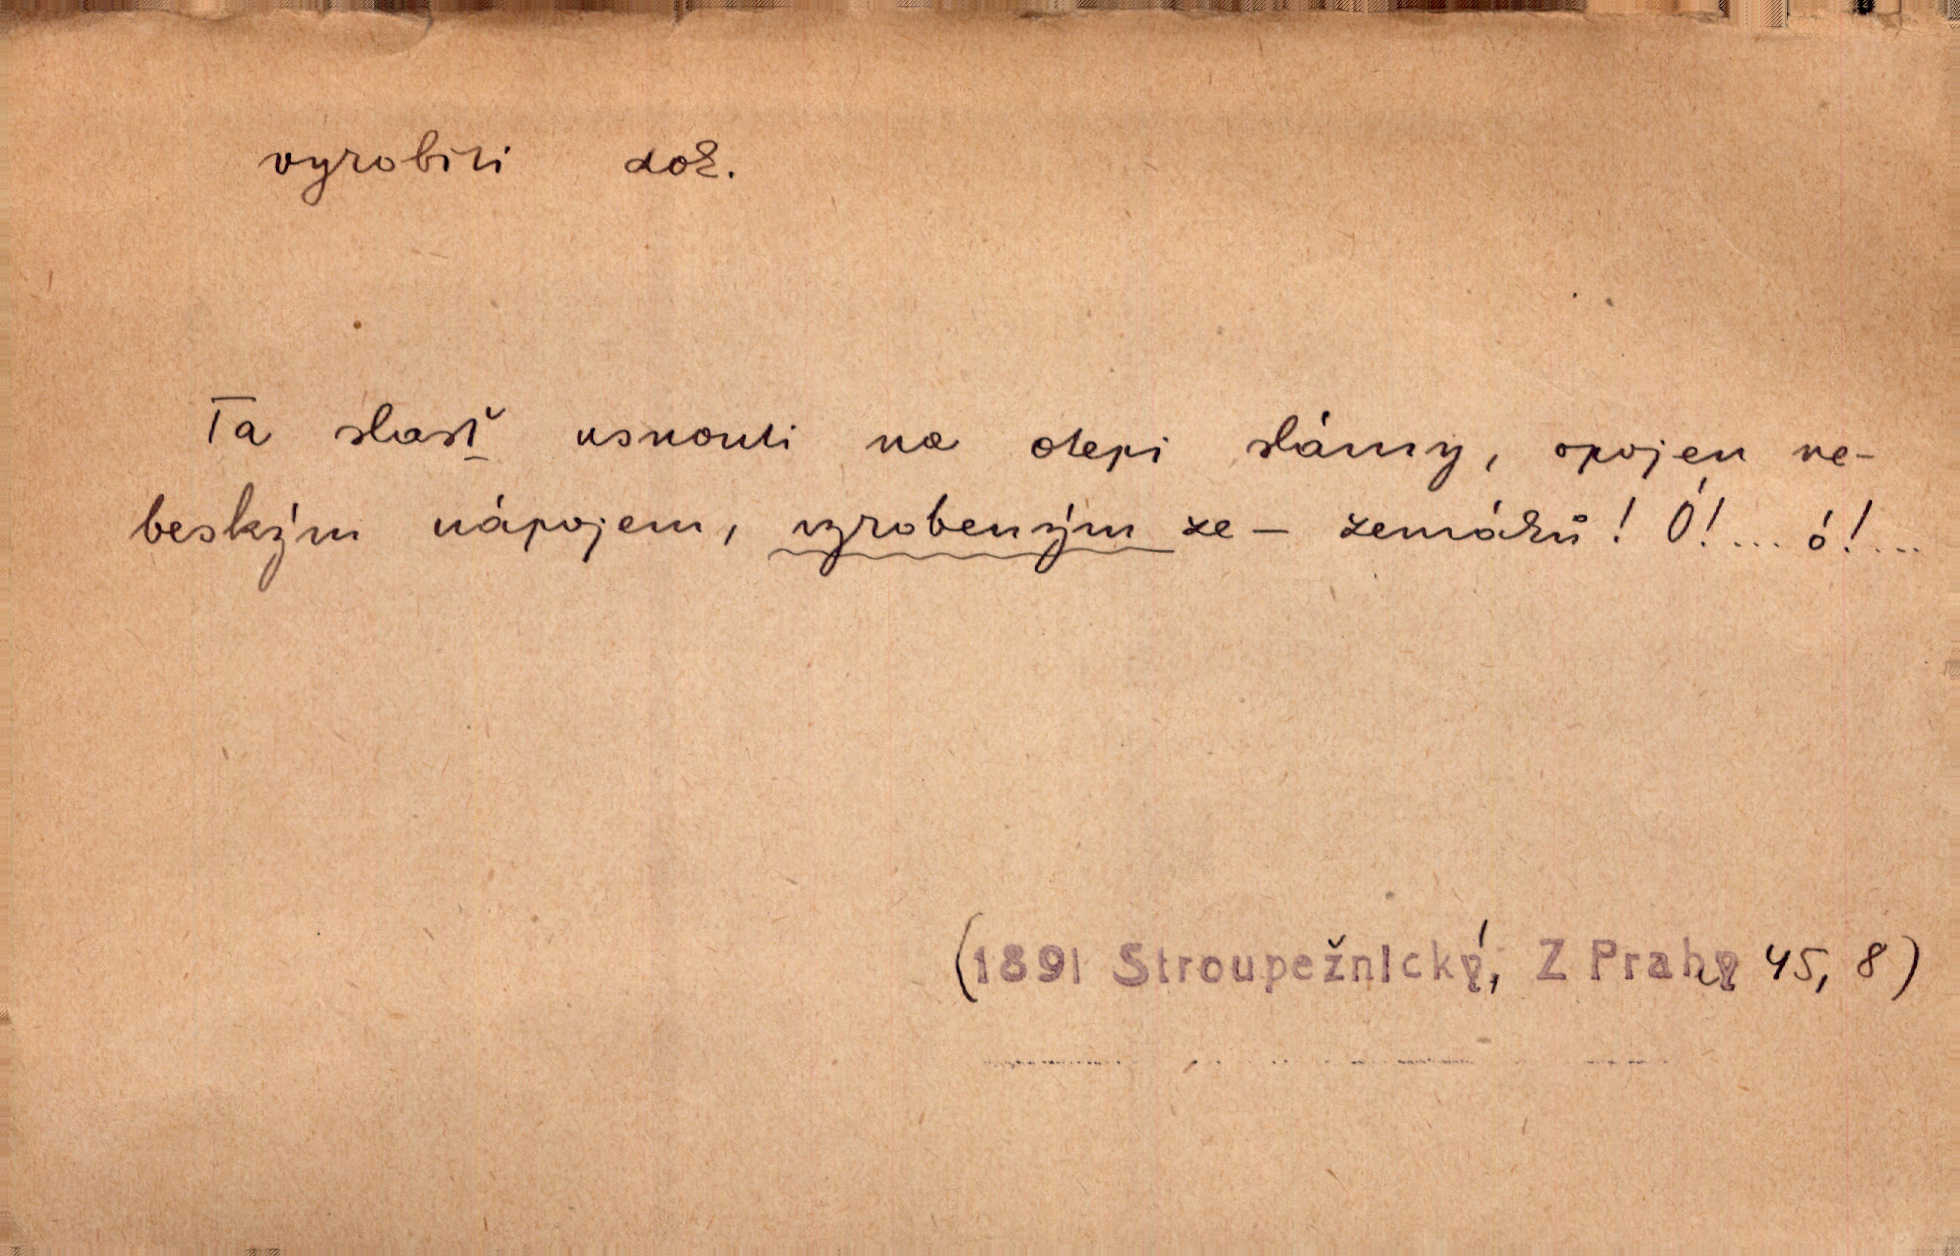 vyrobiti dok.
Ta slasť usnouti na otepi slámy, opojen ne-
beským nápojem, vyrobeným ze – zemáků! Ó!... ó!...
(1891 Stroupežnický, Z Prahy 45, 8)